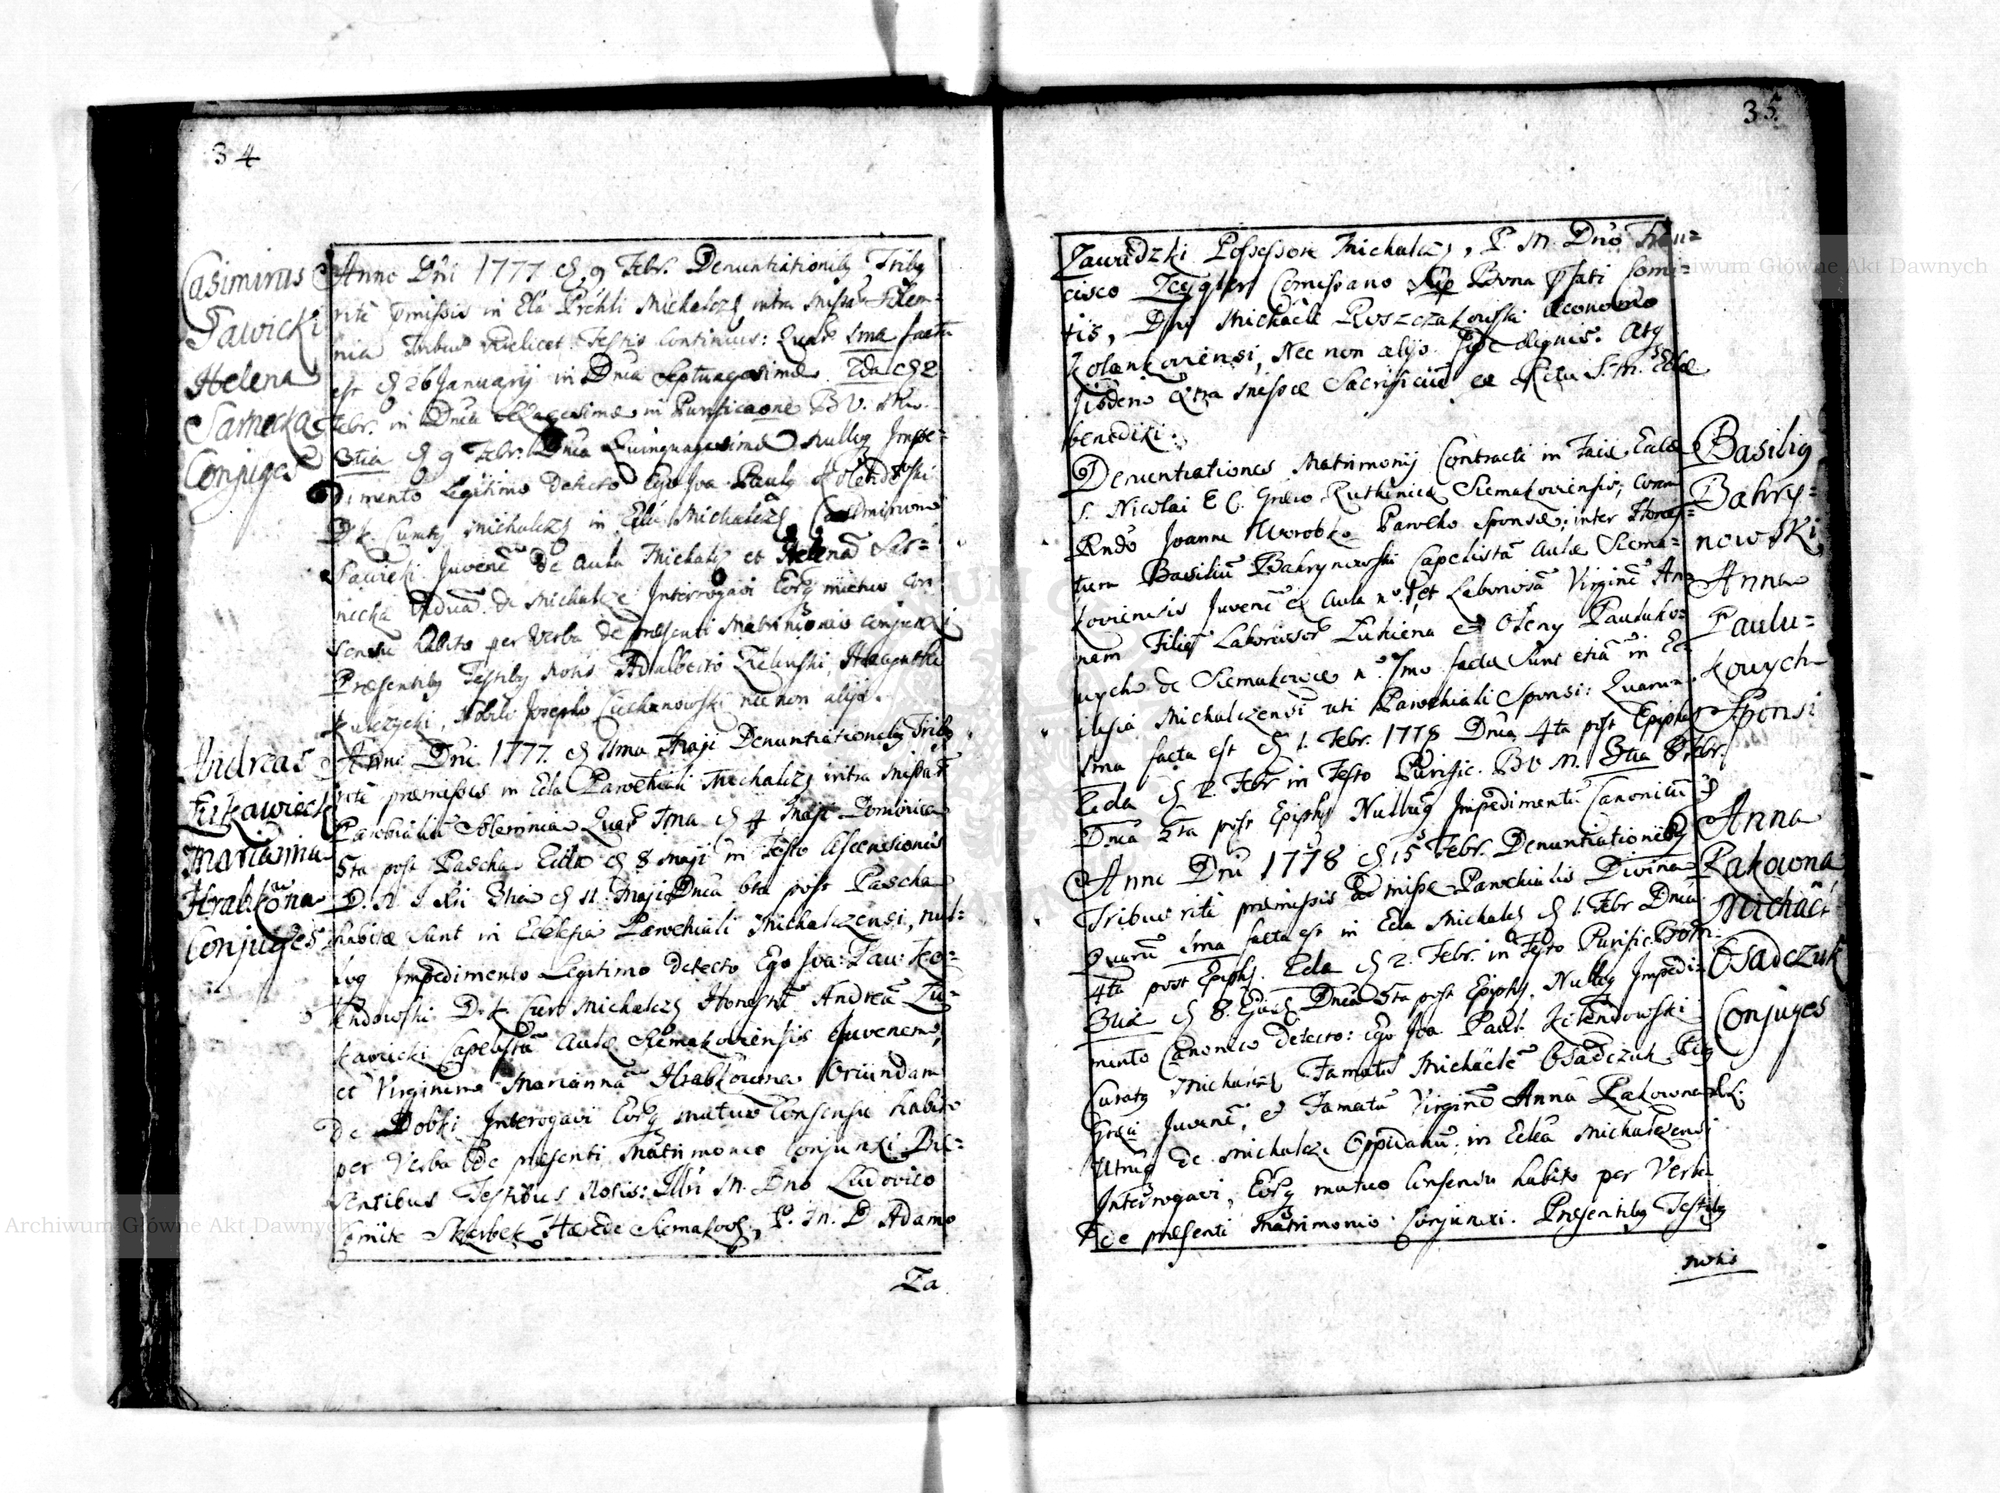 34
Casimirus
Sawicki
Helena
Sarnicka
Conjuges
Anno Dni 1777 d. 9 Febr. Denuntiationibg Tribg
rite pmissis in Ecla Prchli Michalczs intra Missar Solem-
nia Tribus videlicet Festis continuis: Quar 1ma facta
est d. 26 Januarij in Dnica Septuagesimæ. 2da d. 2
Febr. in Dnica Sexagesimæ in Purificaone B. V. M.
3tia d. 9 Febr. Dnica Quinquagesimæ Nullog Impe-
dimento Legitimo detecto Ego Joa. Paulg Kolendowski
D. K. Curatg Michalczs in Ecla Michalczs Casimirum
Sawicki Juvenē de Aula Michalcz et Helenā Sar-
nicka Viduā de Michalcze Interrogavi Eorg mutuo con
sensu habito per Verba de præsenti Matrimonio conjunxi
Præsentibg Testibg Notis Adalberto Zielinski, Hyacintho
Kulczycki, Nobili Josepho Ciechanowski nec non alijs.
Andreas
Łukawieck
Marianna
Hrabkōna
Conjuges
Anno Dni 1777. d. 11ma Maji Denuntiationibg Tribg
rite præmissis in Ecla Parochiali Michalczs intra Missar
Parochialiū Solemnia Quar 1ma d. 4 Maji Dominica
5ta post Pascha 2da d. 8 Maji in Festo Ascensionis
D. N. J. Xti 3tia d. 11 Maji Dnica 6ta post Pascha
habitæ sunt in Ecclesia Parochiali Michalczensi, nul-
log Impedimento Legitimo detecto Ego Joa: Pau: Ko-
lendowski D. K. Cur. Michalczs Honestū Andreā Łu-
kawicki Capelistā Aulæ Siemakoviensis Juvenem,
et Virginem Mariannā Hrabkowna Oriundam
de Dobki Interogavi Eorg mutuo Consensu habito
per Verba de præsenti Matrimonio Conjunxi Præ-
sentibus Testibus Notis: Illri M. Dno Ludovico
Comite Skarbek Hærede Siemakovs, P. M. D. Adamo
Za
35.
Zawadzki Possessore Michalczs, P. M. Dno Fran-
cisco Zeygler Comissano Sup Bona psati Comi-
tis, Dno Michaele Roszczakowski Oeconomo
Kolankoviensi, Nec non alijs fide dignis. Atq
Jisdem Extra Missæ Sacrificiū ex Ritu S. M. Eclæ
benedixi.
Basilig
Bahry-
nowski
Anna
Paulu-
kowych
Sponsi
Denuntiationes Matrimonij Contracti in Facie Eclæ
S. Nicolai E C. Græco Ruthenicæ Siemakoviensis, coram
Rndo Joanne Worobko Parocho Sponsæ; inter Hones-
tum Basiliū Bahrynowski Capelistā Aulæ Siema-
koviensis Juvenē ex Aula No. 1, et Laboriosā Virginē An-
nam Filiā Laboriosor Lukiena et Oleny Pauluko-
wych de Siemakowce No. Imo factæ sunt etiā in Ec-
clesia Michalczensi uti Parochiali Sponsi: Quarum
1ma facta est d. 1. Febr. 1778 Dnica 4ta post Epiphs
2da d. 2. Febr in Festo Purific. B. V. M. 3tia 8 Febr.
Dnica 5ta post Epiphs Nullug Impedimentū Canonicū D
Anna
Rakowna
Michaēl
Osadczuk
Conjuges
Anno Dni 1778 d. 15 Febr. Denuntiationibg
Tribus rite præmissis ad Missæ Parochialis Divina
Quarū 1ma facta est in Ecla Michalcs d. 1. Febr Dnica
4ta post Epiphs. 2da d. 2. Febr. in Festo Purific. B. V. M.
3tia d. 8. Ejusd. Dnica 5ta post Epiphs. Nullog Impedi-
mento Canonico detecto: Ego Joa. Paul. Kolendowski
Curatg Michalczs Famatū Michaelē Osadczuk Ritg
Græci Juvenē, et Famatā Virginē Annā Rakowna R. L.
Utrūg de Michalcze Oppidanū, in Ecla Michalczensi
Interrogavi, Eorg mutuo consensu habito per Verba
de præsenti Matrimonio Conjunxi. Præsentibg Testibg
notis
Archiwum Główne Akt Dawnych
Archiwum Główne Akt Dawnych